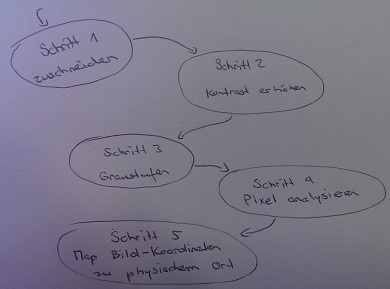 Schritt 1
zuschneiden
Schritt 2
Kontrast erhöhen
Schritt 3
Graustufen
Schritt 4
Pixel analysieren
Schritt 5
Map Bild-Koordinaten
zu physischem Ort